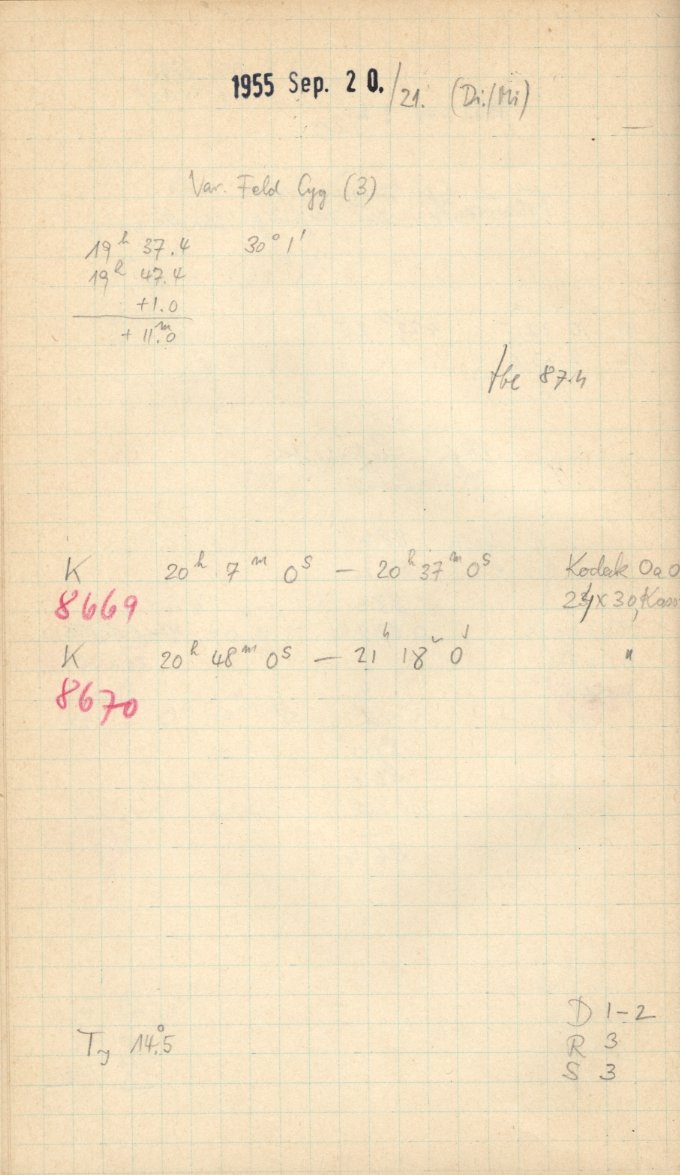 1955 Sep. 20./21. (Di./Mi)
Var. Feld Cyg (3)
19h 37.4 30° 1'
19h 47.4
+1.0
+ 11.m0
87.4
K 20h 7m 0s — 20h 37m 0s Kodak OaO
8669 24x30, Kass
K 20h 48m 0s — 21h 18m 0s "
8670
D 1-2
T 14.°5
R 3
S 3